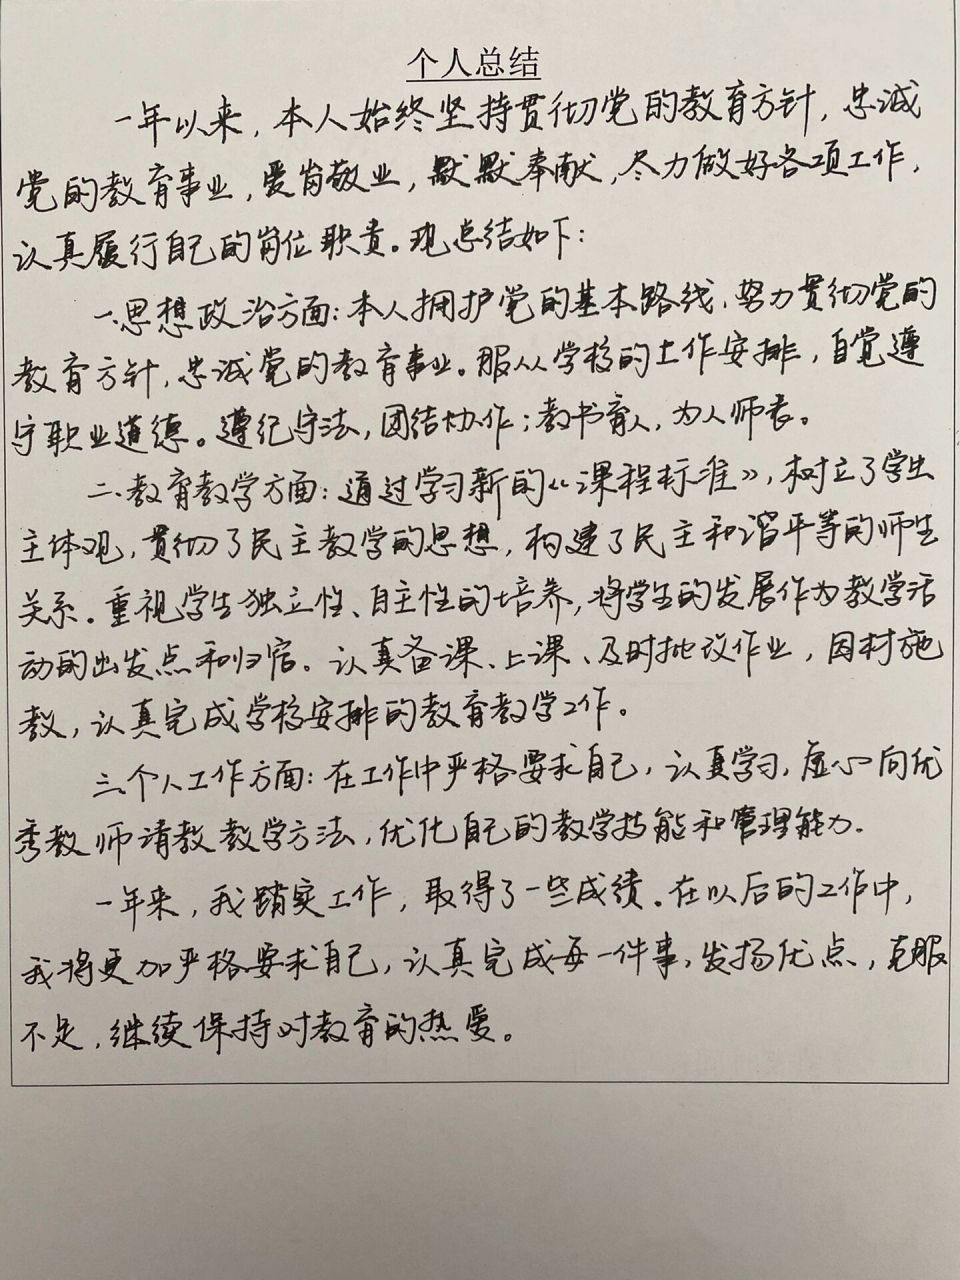 个人总结
一年以来，本人始终坚持贯彻党的教育方针，忠诚
党的教育事业，爱岗敬业，默默奉献，尽力做好各项工作，
认真履行自己的岗位职责。现总结如下：
一、思想政治方面：本人拥护党的基本路线，努力贯彻党的
教育方针，忠诚党的教育事业。服从学校的工作安排，自觉遵
守职业道德。遵纪守法，团结协作；教书育人，为人师表。
二、教育教学方面：通过学习新的《课程标准》，树立了学生
主体观，贯彻了民主教学的思想，构建了民主和谐平等的师生
关系。重视学生独立性、自主性的培养，将学生的发展作为教学活
动的出发点和归宿。认真备课、上课、及时批改作业，因材施
教，认真完成学校安排的教育教学工作。
三、个人工作方面：在工作中严格要求自己，认真学习，虚心向优
秀教师请教教学方法，优化自己的教学技能和管理能力。
一年来，我踏实工作，取得了一些成绩。在以后的工作中，
我将更加严格要求自己，认真完成每一件事，发扬优点，克服
不足，继续保持对教育的热爱。